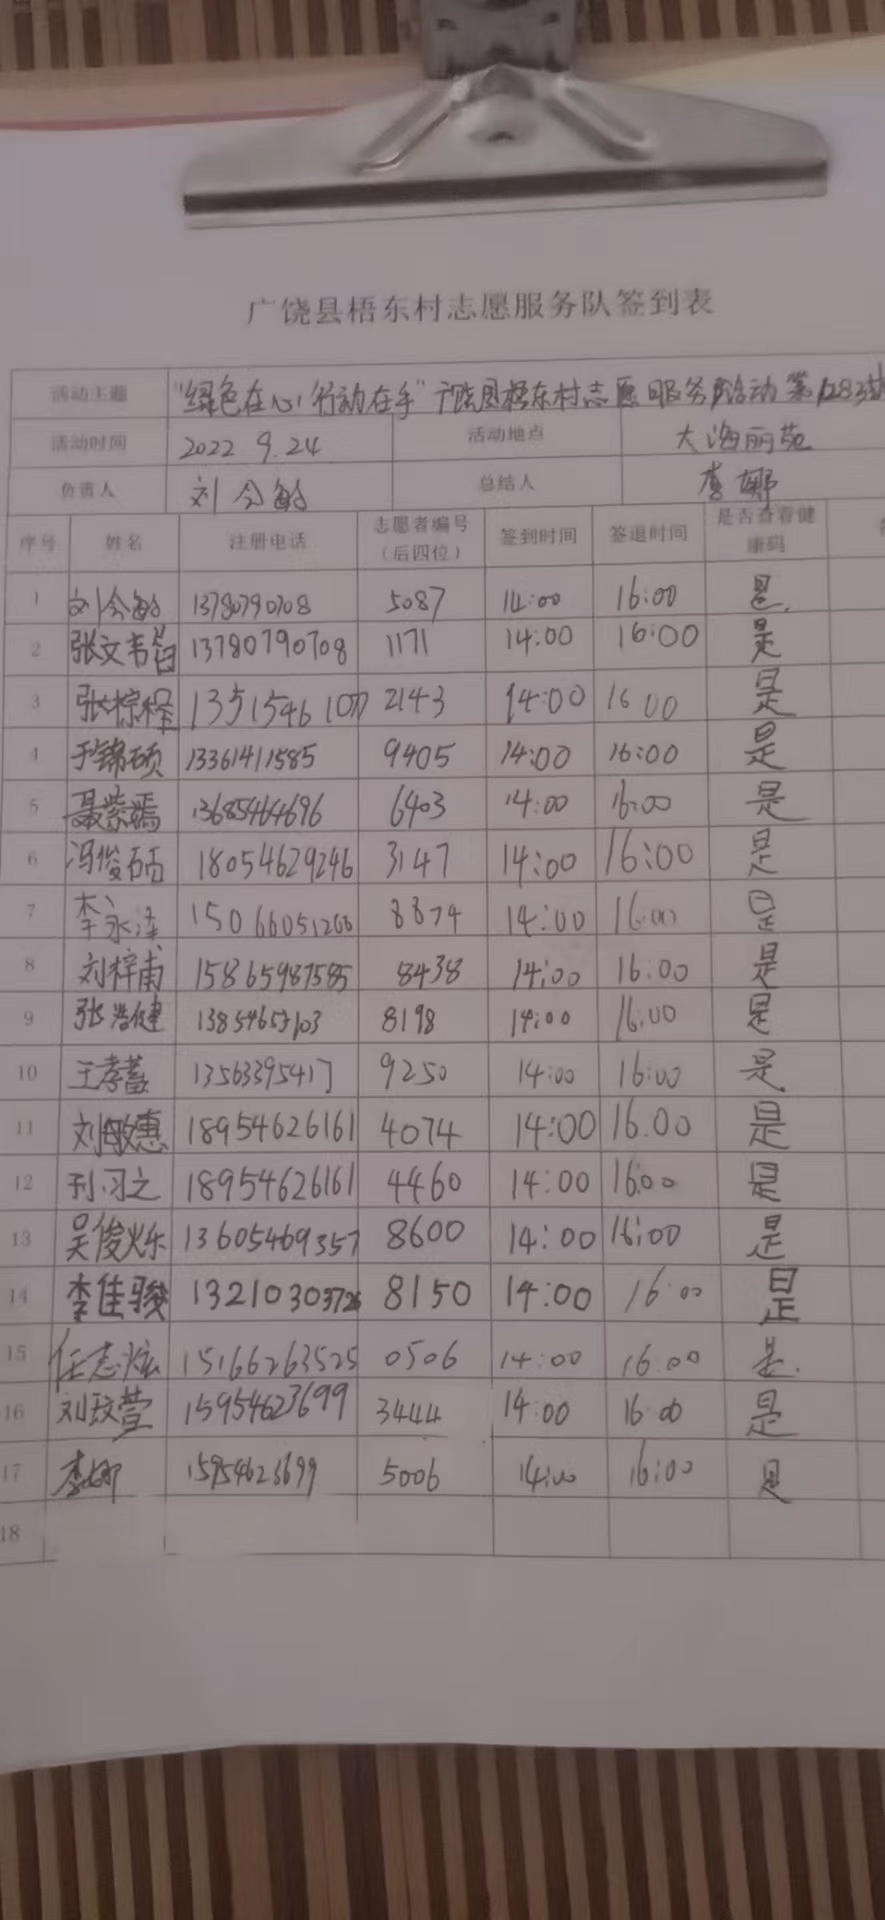 广饶县梧东村志愿服务队签到表
活动主题 "绿色在心 行动在手"广饶县梧东村志愿服务队活动第1283
活动时间 2022 9.24 活动地点 大海丽苑
负责人 刘会敏 总结人 李娜
序号 姓名 注册电话 志愿者编号（后四位） 签到时间 签退时间 是否查看健康码
1 刘会敏 13780790708 5087 14:00 16:00 是.
2 张文韦 13780790708 1171 14:00 16:00 是
3 张棕 1351546 2143 14:00 16 00 是
4 于锦硕 13361411585 9405 14:00 16:00 是
5 聂紫嫣 13685464696 6403 14:00 16:00 是
6 冯俊 18054629246 3147 14:00 16:00 是
7 李永泽 15066051268 8874 14:00 16:00 是
8 刘梓甫 15865987585 8438 14:00 16:00 是
9 张浩健 8198 14:00 16:00 是
10 王孝 9250 14:00 16:00 是
11 刘敏惠 18954626161 4074 14:00 16.00 是
12 刘习之 18954626161 4460 14:00 16:00 是
13 吴俊烁 13605469357 8600 14:00 16:00 是
14 李佳骏 13210303726 8150 14:00 16:00 是
15 任志炫 15166263525 0506 14:00 16:00 是.
16 刘玟萱 15954623699 3444 14:00 16:00 是
17 李娜 15954623699 5006 14:00 16:00 是
18